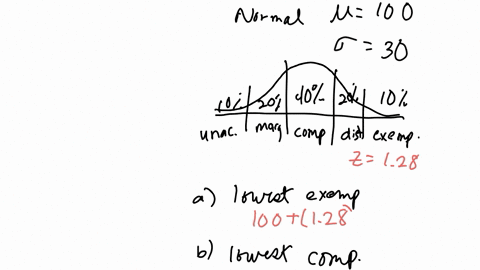 Normal μ = 100
σ = 30
10% 20% 40% 20% 10%
unac. marg comp dist exemp.
z = 1.28
a) lowest exemp
100+(1.28)
b) lowest comp.